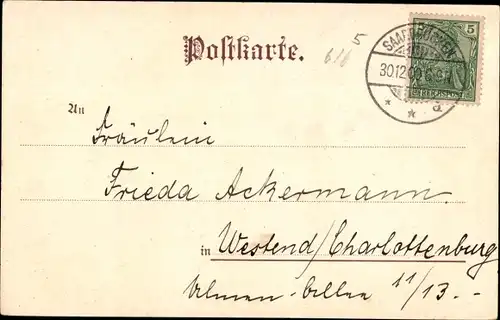 Postkarte.
5
SAARBRÜCKEN
30.12.00
REICHSPOST
a
An
Fräulein
Frieda Ackermann.
in Westend/Charlottenburg
Ulmen-Allee 11/13.-